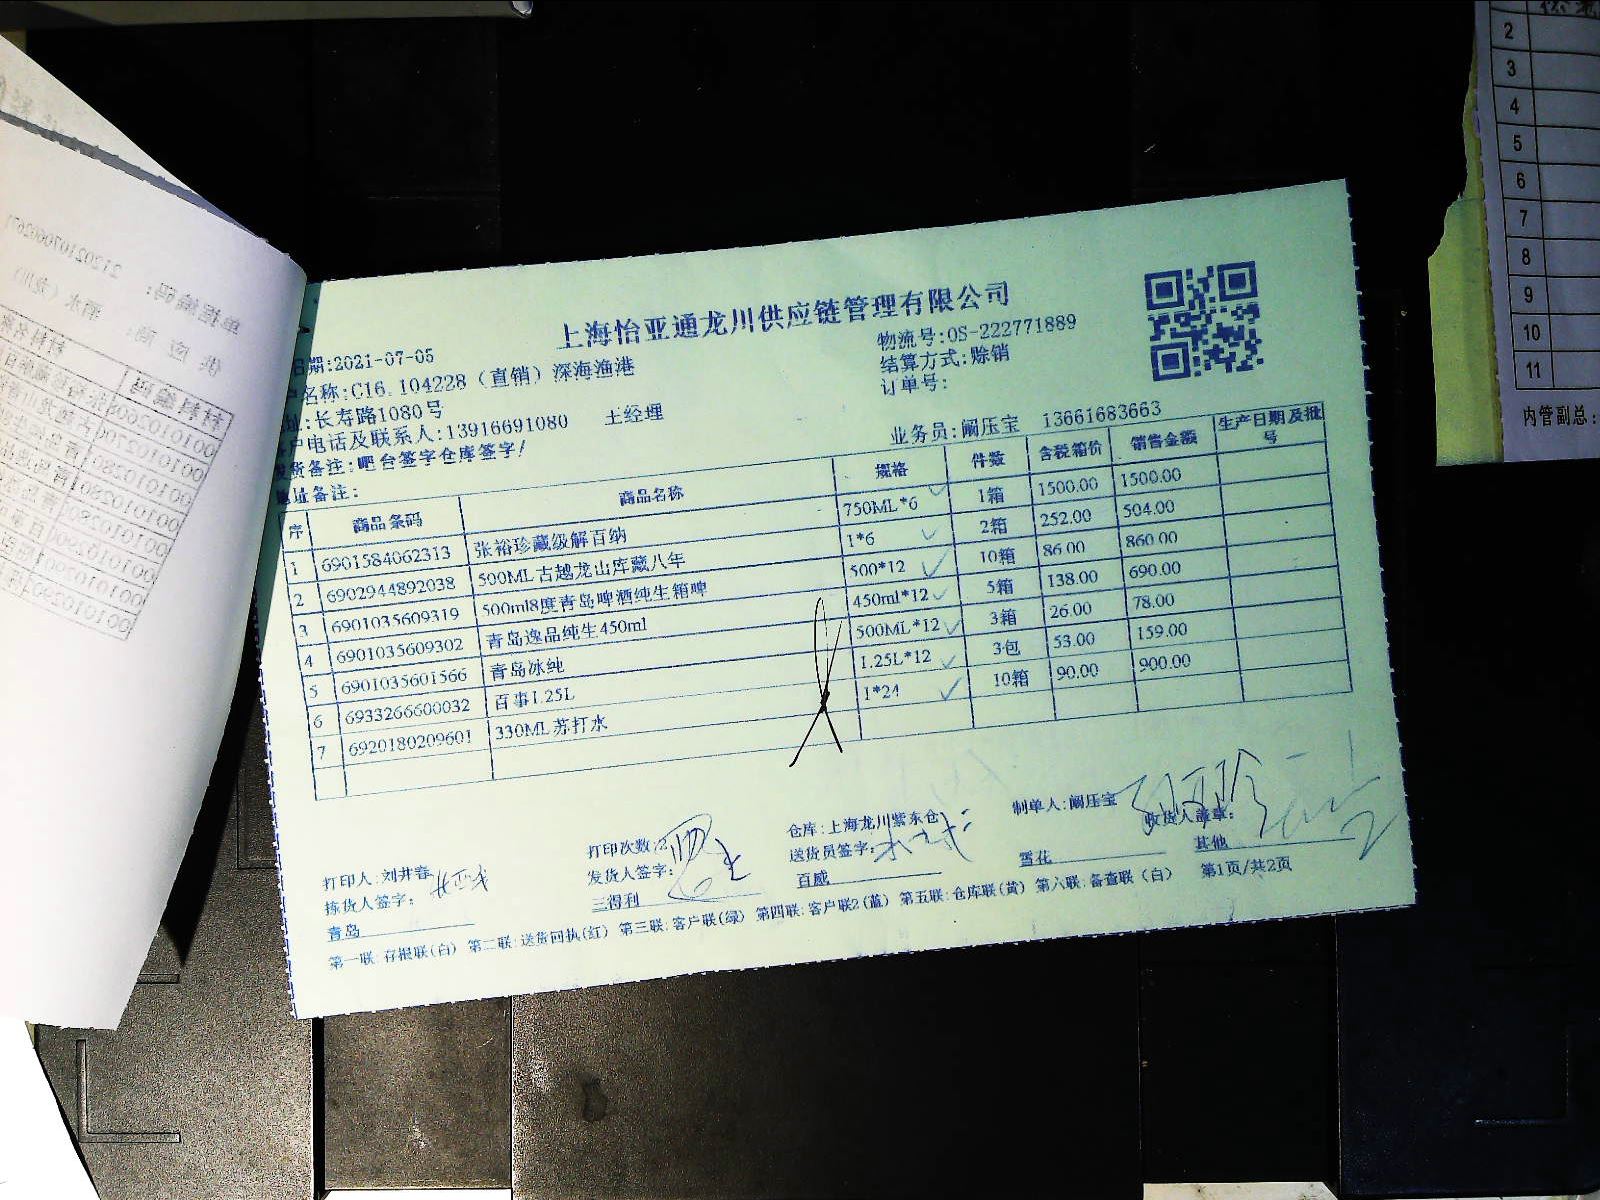 上海怡亚通龙川供应链管理有限公司
日期:2021-07-05
物流号:OS-222771889
名称:C16.104228（直销）深海渔港
结算方式:赊销
址:长寿路1080号
订单号:
户电话及联系人:13916691080 王经理
业务员:阚压宝 13661683663
货备注:吧台签字仓库签字!
地址备注:
序 商品条码 商品名称 规格 件数 含税箱价 销售金额 生产日期及批号
1 6901584062313 张裕珍藏级解百纳 750ML*6 1箱 1500.00 1500.00
2 6902944892038 500ML古越龙山库藏八年 1*6 2箱 252.00 504.00
3 6901035609319 500ml8度青岛啤酒纯生箱啤 500*12 10箱 86.00 860.00
4 6901035609302 青岛逸品纯生450ml 450ml*12 5箱 138.00 690.00
5 6901035601566 青岛冰纯 500ML*12 3箱 26.00 78.00
6 6933266600032 百事1.25L 1.25L*12 3包 53.00 159.00
7 6920180209601 330ML苏打水 1*24 10箱 90.00 900.00
打印人:刘井春 打印次数: 仓库:上海龙川紫东仓 制单人:阚压宝 收货人盖章:
拣货人签字: 发货人签字: 送货员签字:
青岛 三得利 百威 雪花 其他
第一联:存根联(白) 第二联:送货回执(红) 第三联:客户联(绿) 第四联:客户联2(蓝) 第五联:仓库联(黄) 第六联:备查联(白) 第1页/共2页
2
3
4
5
6
7
8
9
10
11
内管副总:
单据编码:
供应商:
材料编码